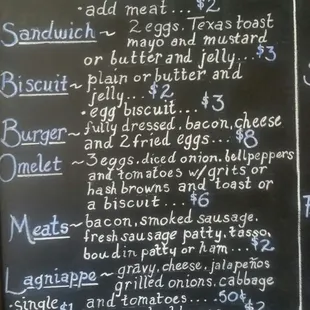 • add meat... $2
Sandwich ~ 2 eggs. Texas toast
mayo and mustard
or butter and jelly... $3
Biscuit ~ plain or butter and
jelly... $2
• egg biscuit... $3
Burger ~ fully dressed, bacon, cheese
and 2 fried eggs... $8
Omelet ~ 3 eggs, diced onion, bellpeppers
and tomatoes w/grits or
hashbrowns and toast or
a biscuit... $6
Meats ~ bacon, smoked sausage,
fresh sausage patty, tasso,
boudin patty or ham... $2
Lagniappe ~ gravy, cheese, jalapeños
grilled onions, cabbage
• single $1 and tomatoes.... 50¢
$2